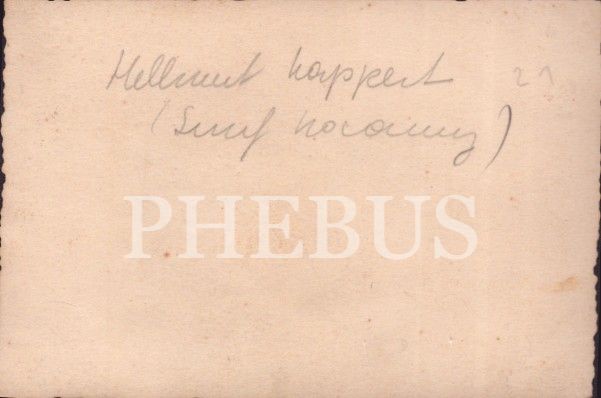 Hellmut 21
(Sınıf hocamız)
PHEBUS